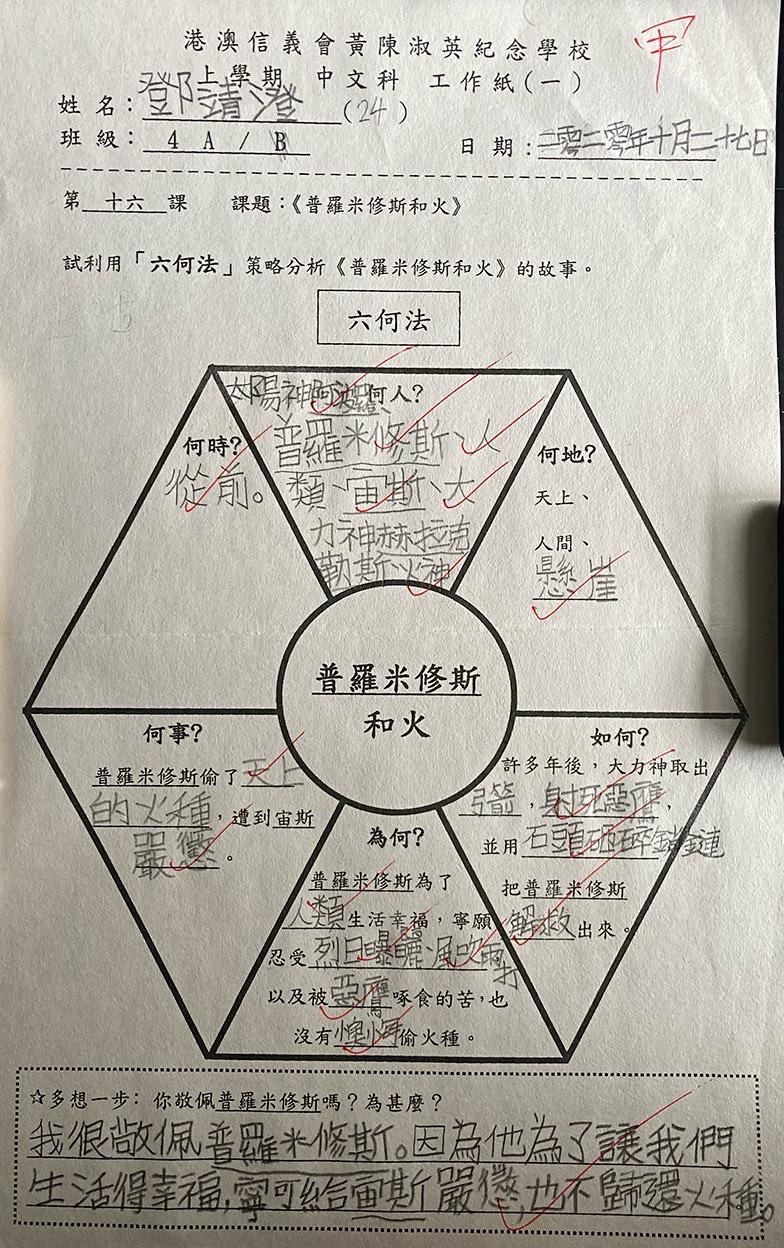 港澳信義會黃陳淑英紀念學校
甲
上學期 中文科 工作紙(一)
姓名：鄧靖澄(24)
班級：4A/B
日期：二零二零年十月二十七日
第十六課 課題：《普羅米修斯和火》
試利用「六何法」策略分析《普羅米修斯和火》的故事。
六何法
何時？
從前。
何人？
太陽神阿波羅、
普羅米修斯、人
類、宙斯、大
力神赫拉克
勒斯、火神
何地？
天上、
人間、
懸崖
普羅米修斯
和火
何事？
普羅米修斯偷了天上
的火種，遭到宙斯
嚴懲。
為何？
普羅米修斯為了
人類生活幸福，寧願
忍受烈日曝曬、風吹雨打
以及被惡鷹啄食的苦，也
沒有懊悔偷火種。
如何？
許多年後，大力神取出
弓箭，射死惡鷹，
並用石頭砸碎鎖鏈
把普羅米修斯
解救出來。
☆多想一步：你敬佩普羅米修斯嗎？為甚麼？
我很敬佩普羅米修斯。因為他為了讓我們
生活得幸福，寧可給宙斯嚴懲，也不歸還火種。